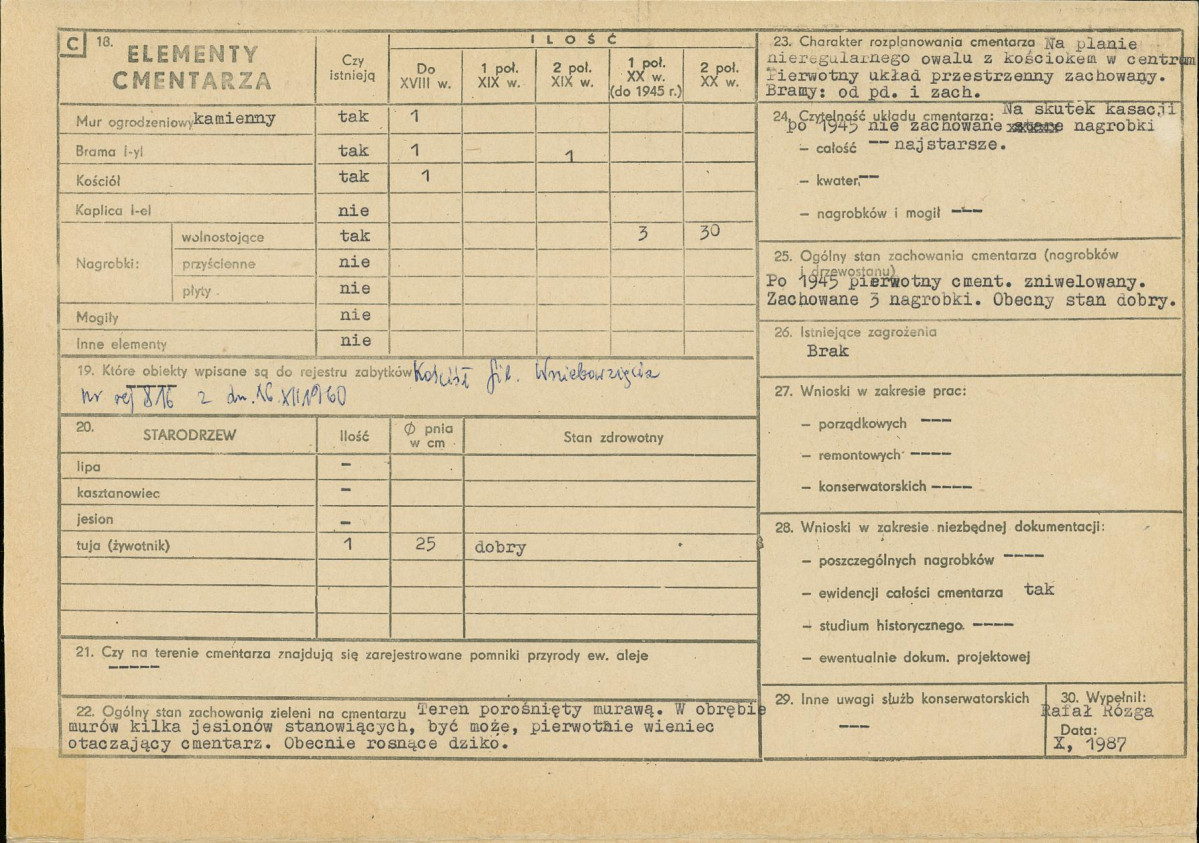 C 18. ELEMENTY CMENTARZA
Czy istnieją
ILOŚĆ
Do XVIII w.
1 poł. XIX w.
2 poł. XIX w.
1 poł. XX w. (do 1945 r.)
2 poł. XX w.
Mur ogrodzeniowy kamienny tak 1
Brama l-yl tak 1 — 1
Kościół tak 1
Kaplica l-el nie
Nagrobki: wolnostojące tak 3 30
przyścienne nie
płyty nie
Mogiły nie
Inne elementy nie
19. Które obiekty wpisane są do rejestru zabytków Kościół fil. Wniebowzięcia
nr rej 816 z dn. 16.XII.1960
20. STARODRZEW Ilość Ø pnia w cm Stan zdrowotny
lipa —
kasztanowiec —
jesion —
tuja (żywotnik) 1 25 dobry
21. Czy na terenie cmentarza znajdują się zarejestrowane pomniki przyrody ew. aleje
-----
22. Ogólny stan zachowania zieleni na cmentarzu Teren porośnięty murawą. W obrębie
murów kilka jesionów stanowiących, być może, pierwotnie wieniec
otaczający cmentarz. Obecnie rosnące dziko.
23. Charakter rozplanowania cmentarza Na planie
nieregularnego owalu z kościokem w centrum
Pierwotny układ przestrzenny zachowany.
Bramy: od pd. i zach.
24. Czytelność układu cmentarza: Na skutek kasacji
po 1945 nie zachowane nagrobki
— całość -- najstarsze.
— kwater, --
— nagrobków i mogił ---
25. Ogólny stan zachowania cmentarza (nagrobków
i drzewostanu)
Po 1945 pierwotny cment. zniwelowany.
Zachowane 3 nagrobki. Obecny stan dobry.
26. Istniejące zagrożenia
Brak
27. Wnioski w zakresie prac:
— porządkowych ---
— remontowych ----
— konserwatorskich ----
28. Wnioski w zakresie niezbędnej dokumentacji:
— poszczególnych nagrobków ----
— ewidencji całości cmentarza tak
— studium historycznego. ----
— ewentualnie dokum. projektowej
29. Inne uwagi służb konserwatorskich
---
30. Wypełnił:
Rafał Rózga
Data:
X, 1987